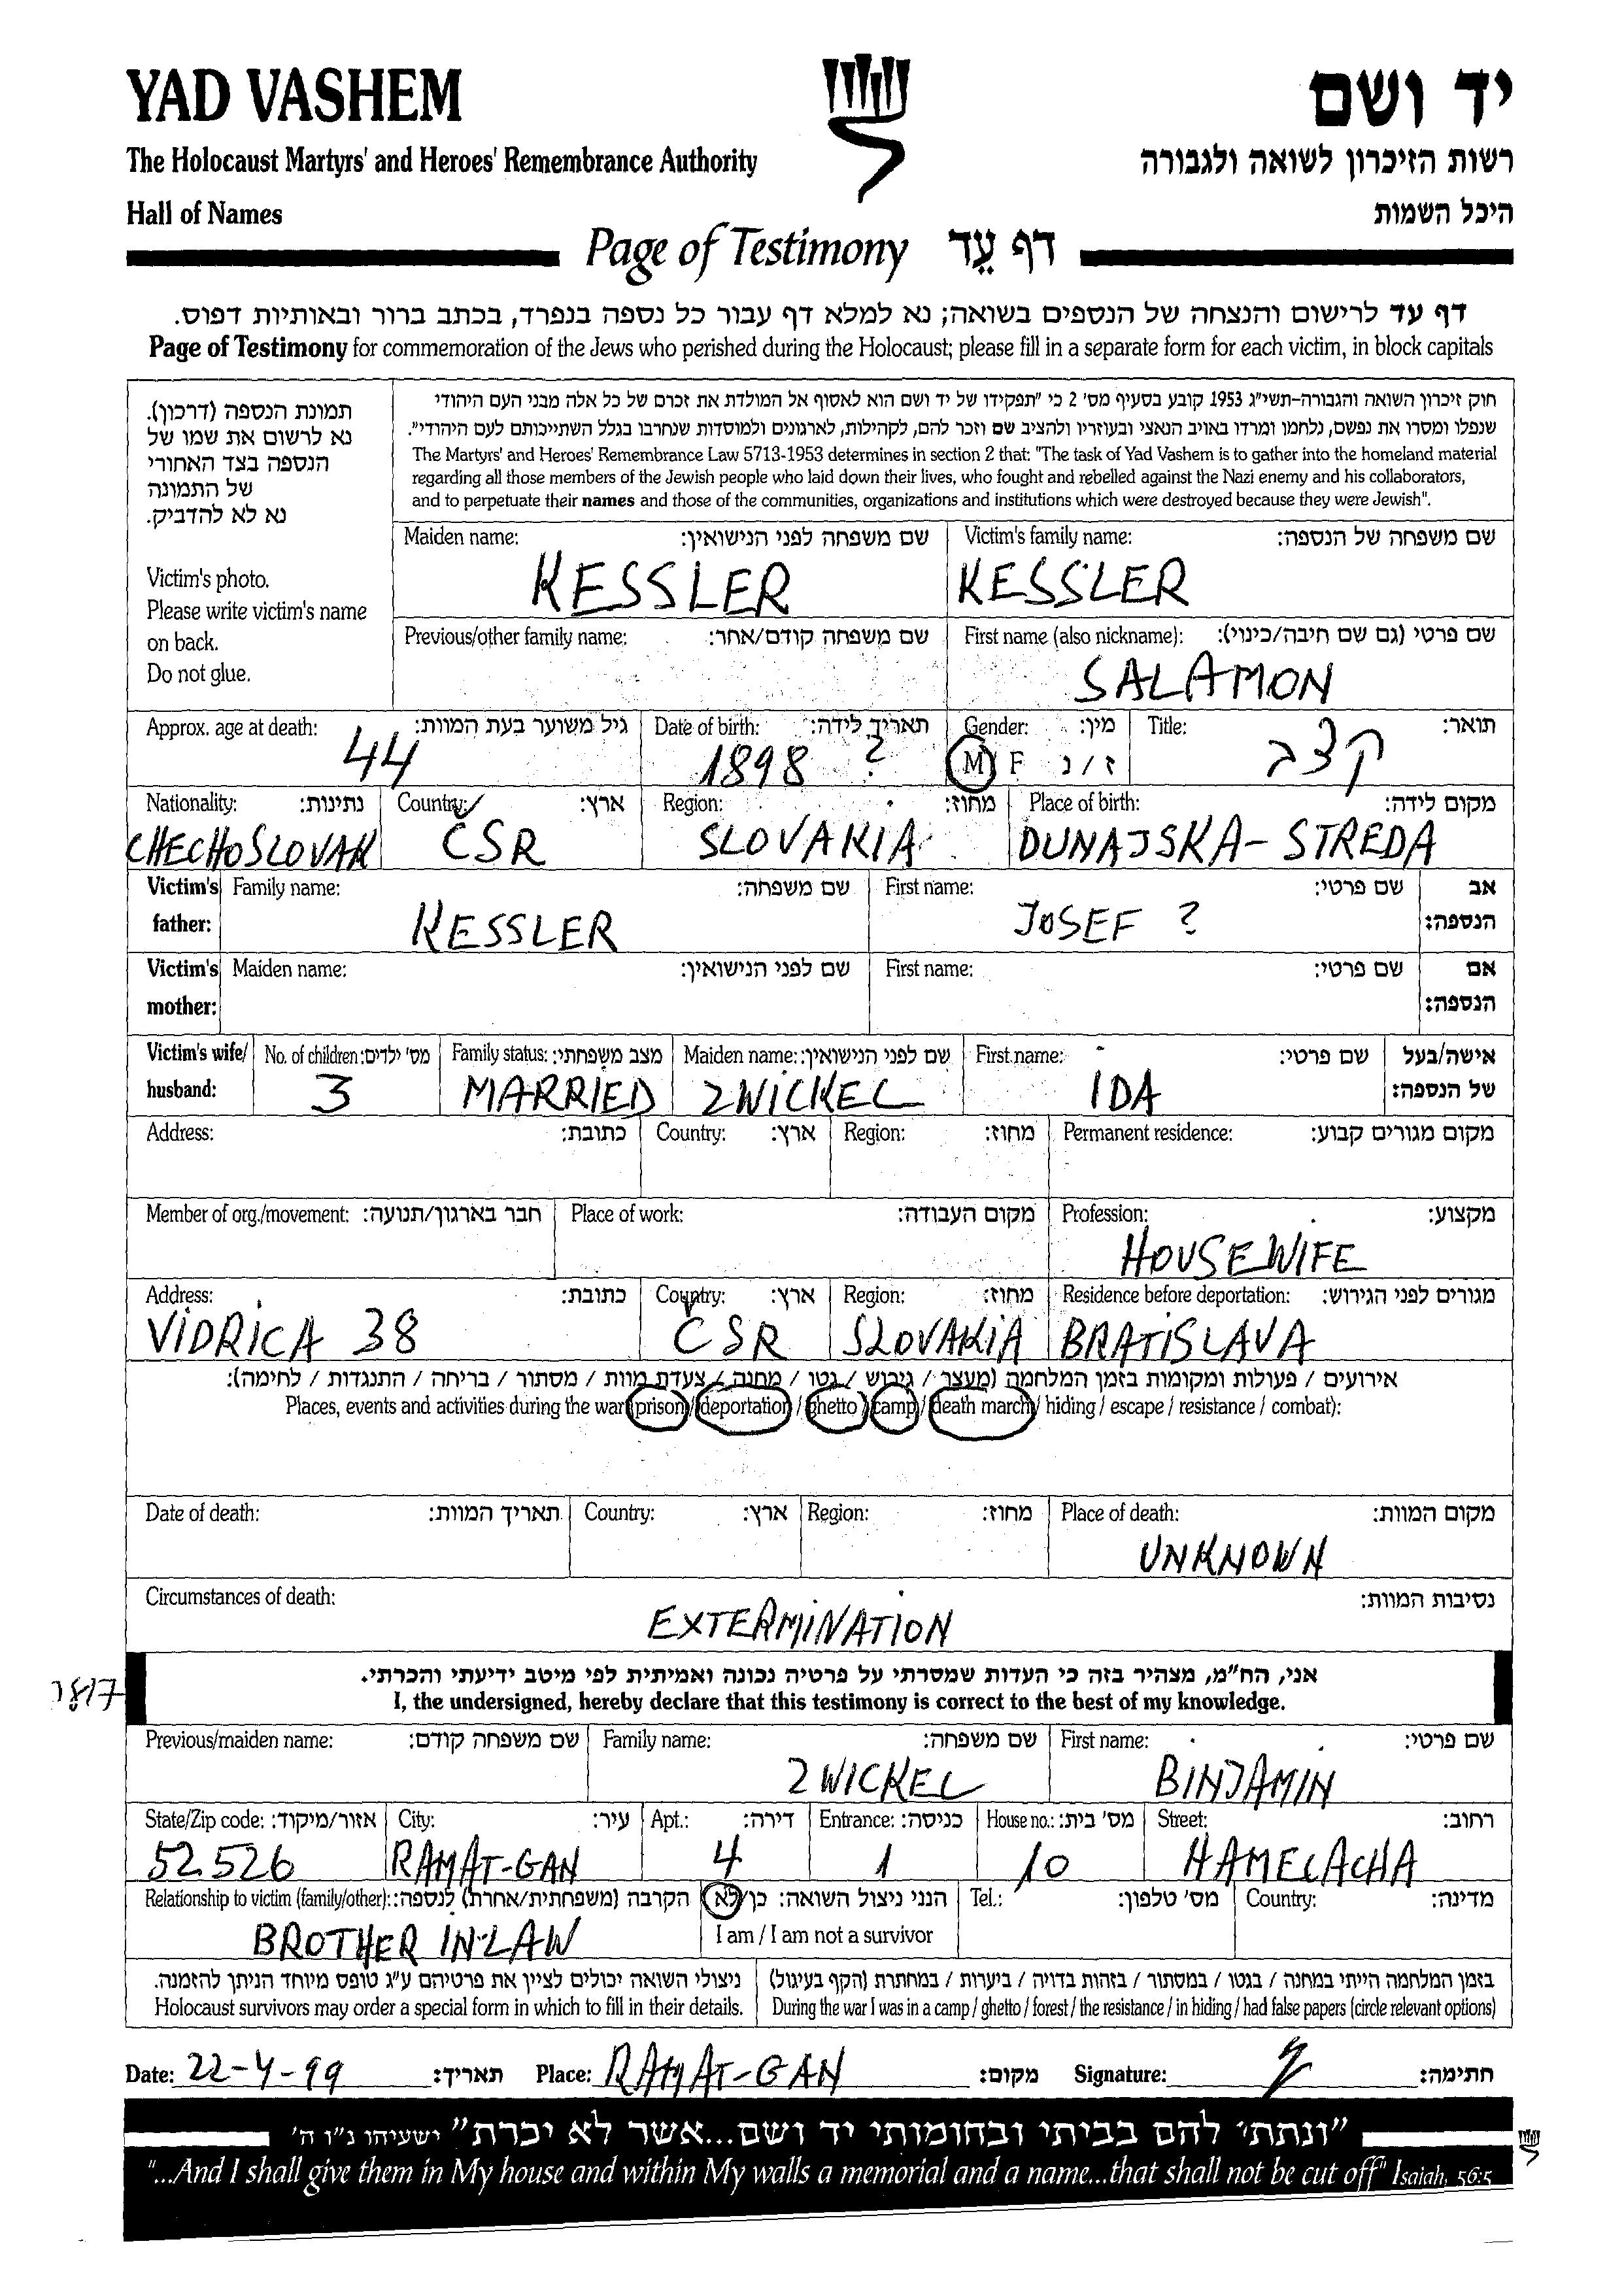 YAD VASHEM
יד ושם
The Holocaust Martyrs' and Heroes' Remembrance Authority
רשות הזיכרון לשואה ולגבורה
Hall of Names
היכל השמות
Page of Testimony דף עֵד
דף עד לרישום והנצחה של הנספים בשואה; נא למלא דף עבור כל נספה בנפרד, בכתב ברור ובאותיות דפוס.
Page of Testimony for commemoration of the Jews who perished during the Holocaust; please fill in a separate form for each victim, in block capitals
תמונת הנספה (דרכון).
נא לרשום את שמו של
הנספה בצד האחורי
של התמונה
נא לא להדביק.
Victim's photo.
Please write victim's name
on back.
Do not glue.
חוק זיכרון השואה והגבורה-תשי"ג 1953 קובע בסעיף מס' 2 כי "תפקידו של יד ושם הוא לאסוף אל המולדת את זכרם של כל אלה מבני העם היהודי
שנפלו ומסרו את נפשם, נלחמו ומרדו באויב הנאצי ובעוזריו ולהציב שם וזכר להם, לקהילות, לארגונים ולמוסדות שנחרבו בגלל השתייכותם לעם היהודי".
The Martyrs' and Heroes' Remembrance Law 5713-1953 determines in section 2 that: "The task of Yad Vashem is to gather into the homeland material
regarding all those members of the Jewish people who laid down their lives, who fought and rebelled against the Nazi enemy and his collaborators,
and to perpetuate their names and those of the communities, organizations and institutions which were destroyed because they were Jewish".
Maiden name: שם משפחה לפני הנישואין: Victim's family name: שם משפחה של הנספה:
KESSLER KESSLER
Previous/other family name: שם משפחה קודם/אחר: First name (also nickname): שם פרטי (גם שם חיבה/כינוי):
SALAMON
Approx. age at death: גיל משוער בעת המוות: Date of birth: תאריך לידה: Gender: מין: Title: תואר:
44 1898 ? M F ז / נ קצב
Nationality: נתינות: Country: ארץ: Region: מחוז: Place of birth: מקום לידה:
CHECHOSLOVAK ČSR SLOVAKIA DUNAJSKA-STREDA
Victim's Family name: שם משפחה: First name: שם פרטי: אב
father: KESSLER JOSEF ? הנספה:
Victim's Maiden name: שם לפני הנישואין: First name: שם פרטי: אם
mother: הנספה:
Victim's wife/ No. of children: מס' ילדים: Family status: מצב משפחתי: Maiden name: שם לפני הנישואין: First name: שם פרטי: אישה/בעל
husband: 3 MARRIED ZWICKEL IDA של הנספה:
Address: כתובת: Country: ארץ: Region: מחוז: Permanent residence: מקום מגורים קבוע:
Member of org./movement: חבר בארגון/תנועה: Place of work: מקום העבודה: Profession: מקצוע:
HOUSEWIFE
Address: כתובת: Country: ארץ: Region: מחוז: Residence before deportation: מגורים לפני הגירוש:
VIDRICA 38 ČSR SLOVAKIA BRATISLAVA
אירועים / פעולות ומקומות בזמן המלחמה (מעצר / גירוש / גטו / מחנה / צעדת מוות / מסתור / בריחה / התנגדות / לחימה):
Places, events and activities during the war (prison / deportation / ghetto / camp / death march / hiding / escape / resistance / combat):
Date of death: תאריך המוות: Country: ארץ: Region: מחוז: Place of death: מקום המוות:
UNKNOWN
Circumstances of death: נסיבות המוות:
EXTERMINATION
אני, הח"מ, מצהיר בזה כי העדות שמסרתי על פרטיה נכונה ואמיתית לפי מיטב ידיעתי והכרתי.
I, the undersigned, hereby declare that this testimony is correct to the best of my knowledge.
Previous/maiden name: שם משפחה קודם: Family name: שם משפחה: First name: שם פרטי:
ZWICKEL BINJAMIN
State/Zip code: אזור/מיקוד: City: עיר: Apt.: דירה: Entrance: כניסה: House no.: מס' בית: Street: רחוב:
52526 RAMAT-GAN 4 1 10 HAMELACHA
Relationship to victim (family/other): הקרבה (משפחתית/אחרת) לנספה: הנני ניצול השואה: כן/לא Tel.: מס' טלפון: Country: מדינה:
BROTHER IN-LAW I am / I am not a survivor
ניצולי השואה יכולים לציין את פרטיהם ע"ג טופס מיוחד הניתן להזמנה. בזמן המלחמה הייתי במחנה / בגטו / במסתור / בזהות בדויה / ביערות / במחתרת (הקף בעיגול)
Holocaust survivors may order a special form in which to fill in their details. During the war I was in a camp / ghetto / forest / the resistance / in hiding / had false papers (circle relevant options)
Date: 22-4-99 תאריך: Place: RAMAT-GAN מקום: Signature: חתימה:
"ונתתי להם בביתי ובחומותי יד ושם...אשר לא יכרת" ישעיהו נ"ו ה'
"...And I shall give them in My house and within My walls a memorial and a name...that shall not be cut off" Isaiah, 56:5